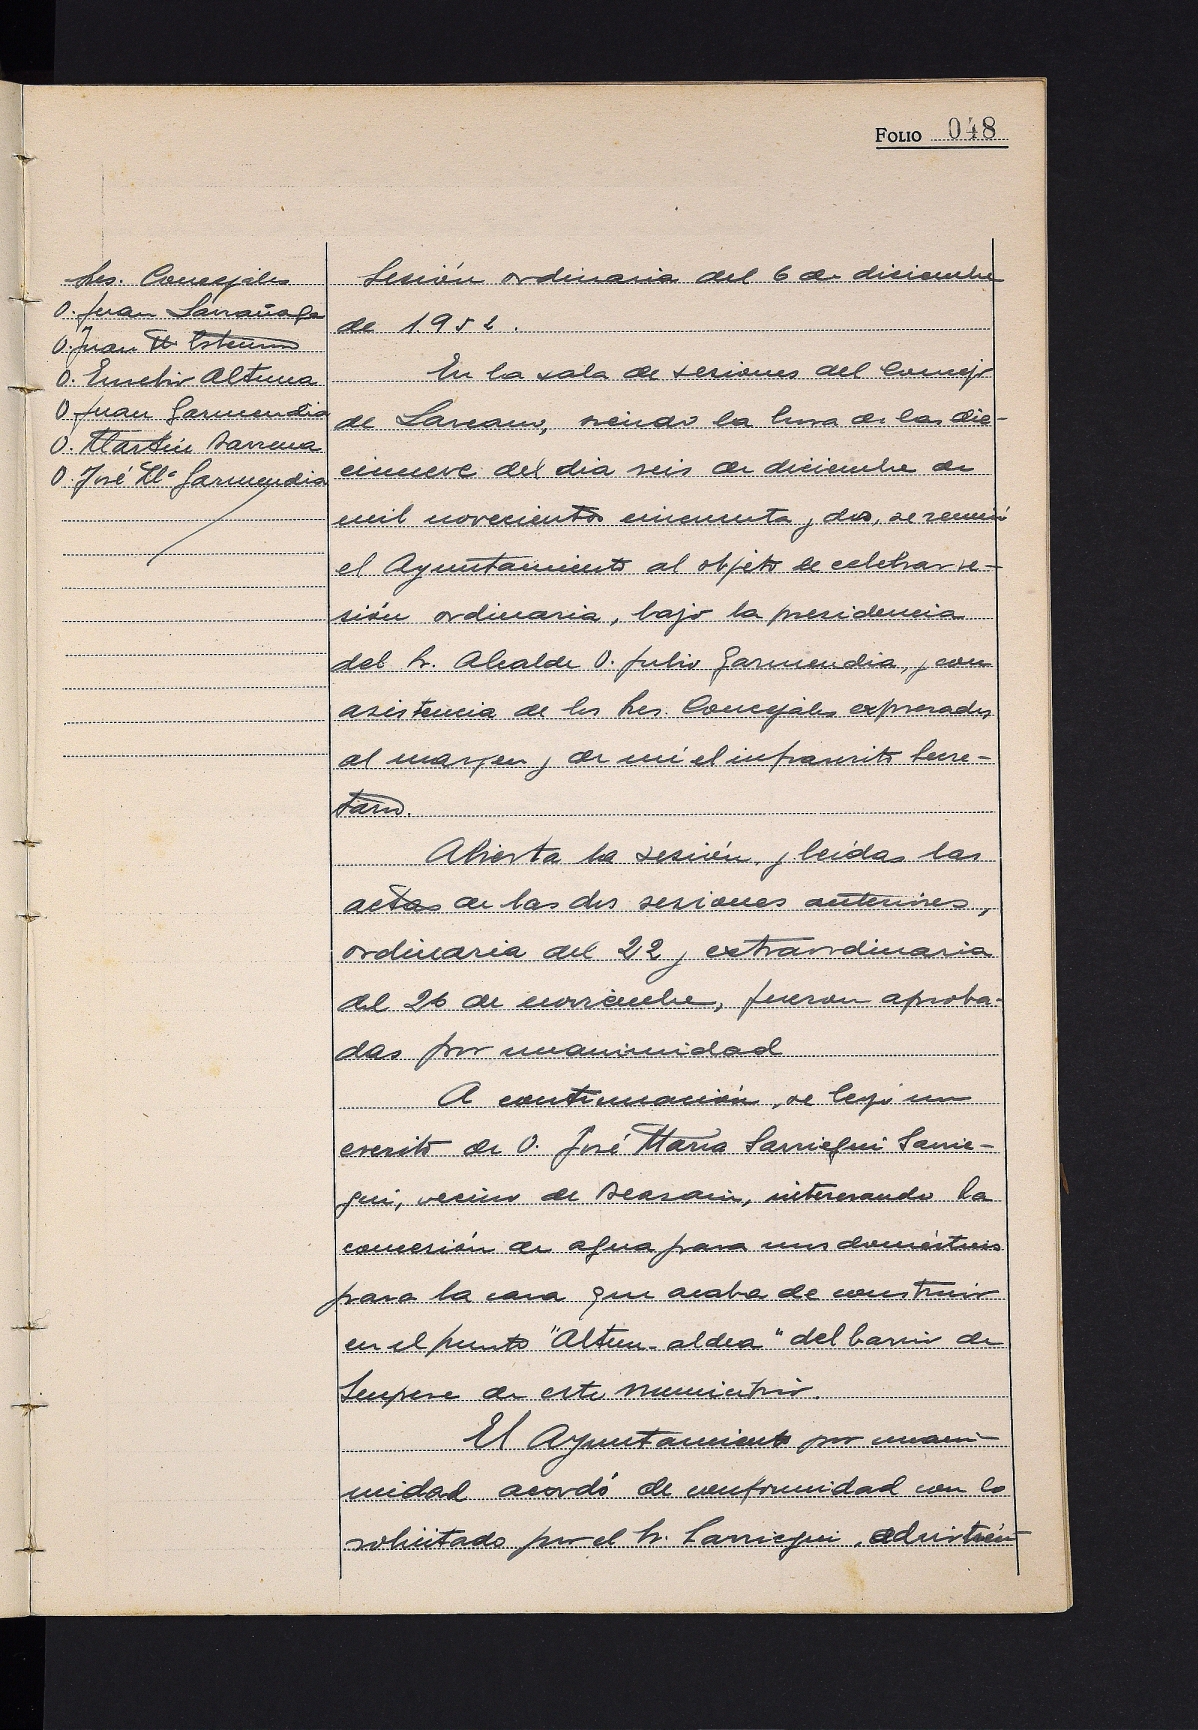 FOLIO 048
Sres. Concejales
D. Juan Larrañaga
D. Juan
D. Eusebio Altuna
D. Juan Garmendia
D. Martín Barrena
D. José Mª Garmendia
Sesión ordinaria del 6 de diciembre
de 1952.
En la sala de sesiones del Concejo
de Lazcano, siendo la hora de las die-
cinueve del dia seis de diciembre de
mil novecientos cincuenta y dos, se reunió
el Ayuntamiento al objeto de celebrar se-
sión ordinaria, bajo la presidencia
del Sr. Alcalde D. Julio Garmendia, y con
asistencia de los Sres. Concejales expresados
al margen y de mí el infrascrito Secre-
tario.
Abierta la sesión, y leídas las
actas de las dos sesiones anteriores,
ordinaria del 22 y extraordinaria
del 26 de noviembre, fueron aproba-
das por unanimidad
A continuación, se leyó un
escrito de D. José María Sarriegui Sarrie-
gui, vecino de Beasain, interesando la
concesión de agua para usos domésticos
para la casa que acaba de construir
en el punto "Altun-aldea" del barrio de
Senpere de este municipio.
El Ayuntamiento por unani-
midad acordó de conformidad con lo
solicitado por el Sr. Sarriegui, advirtién-